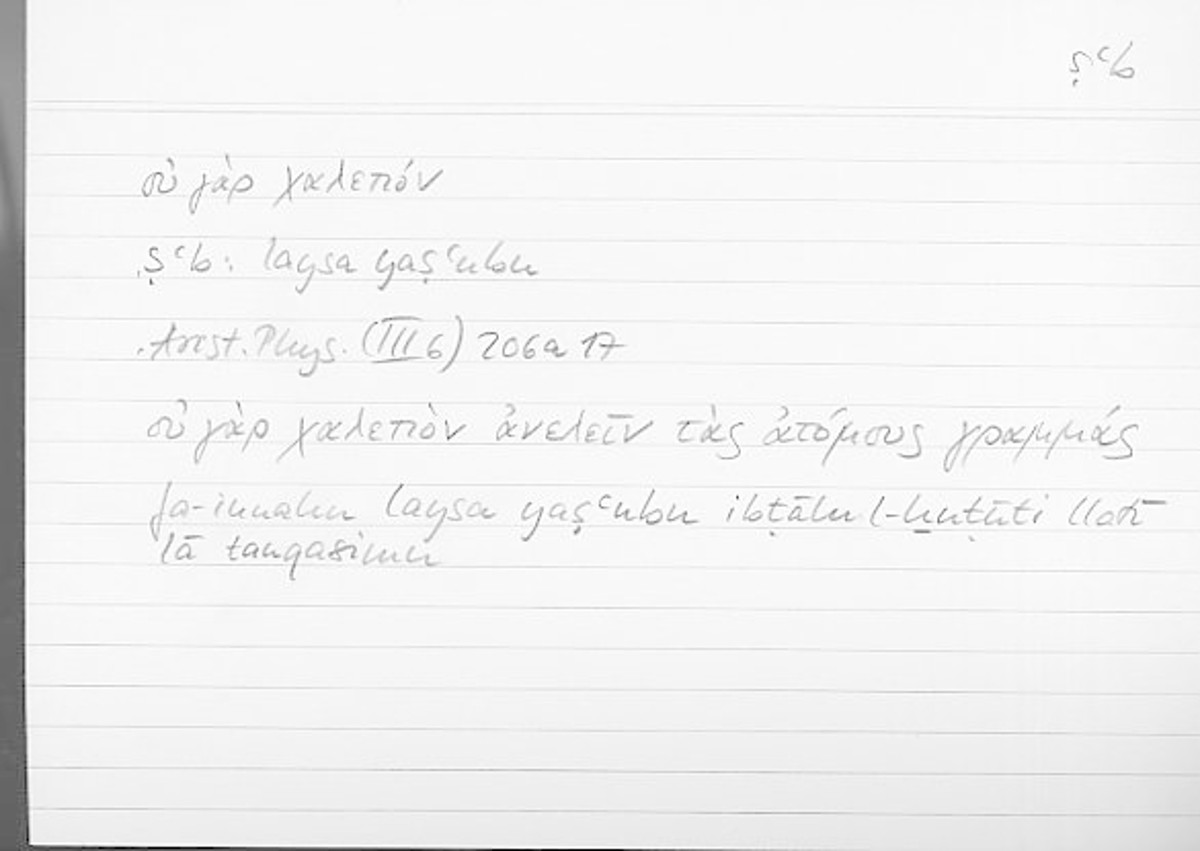 ṣʿb
οὐ γὰρ χαλεπόν
ṣʿb: laysa yaṣʿubu
Arist. Phys. (III 6) 206a 17
οὐ γὰρ χαλεπὸν ἀνελεῖν τὰς ἀτόμους γραμμάς
fa-innahu laysa yaṣʿubu ibṭālu l-ḫuṭūṭi llatī
lā tanqasimu